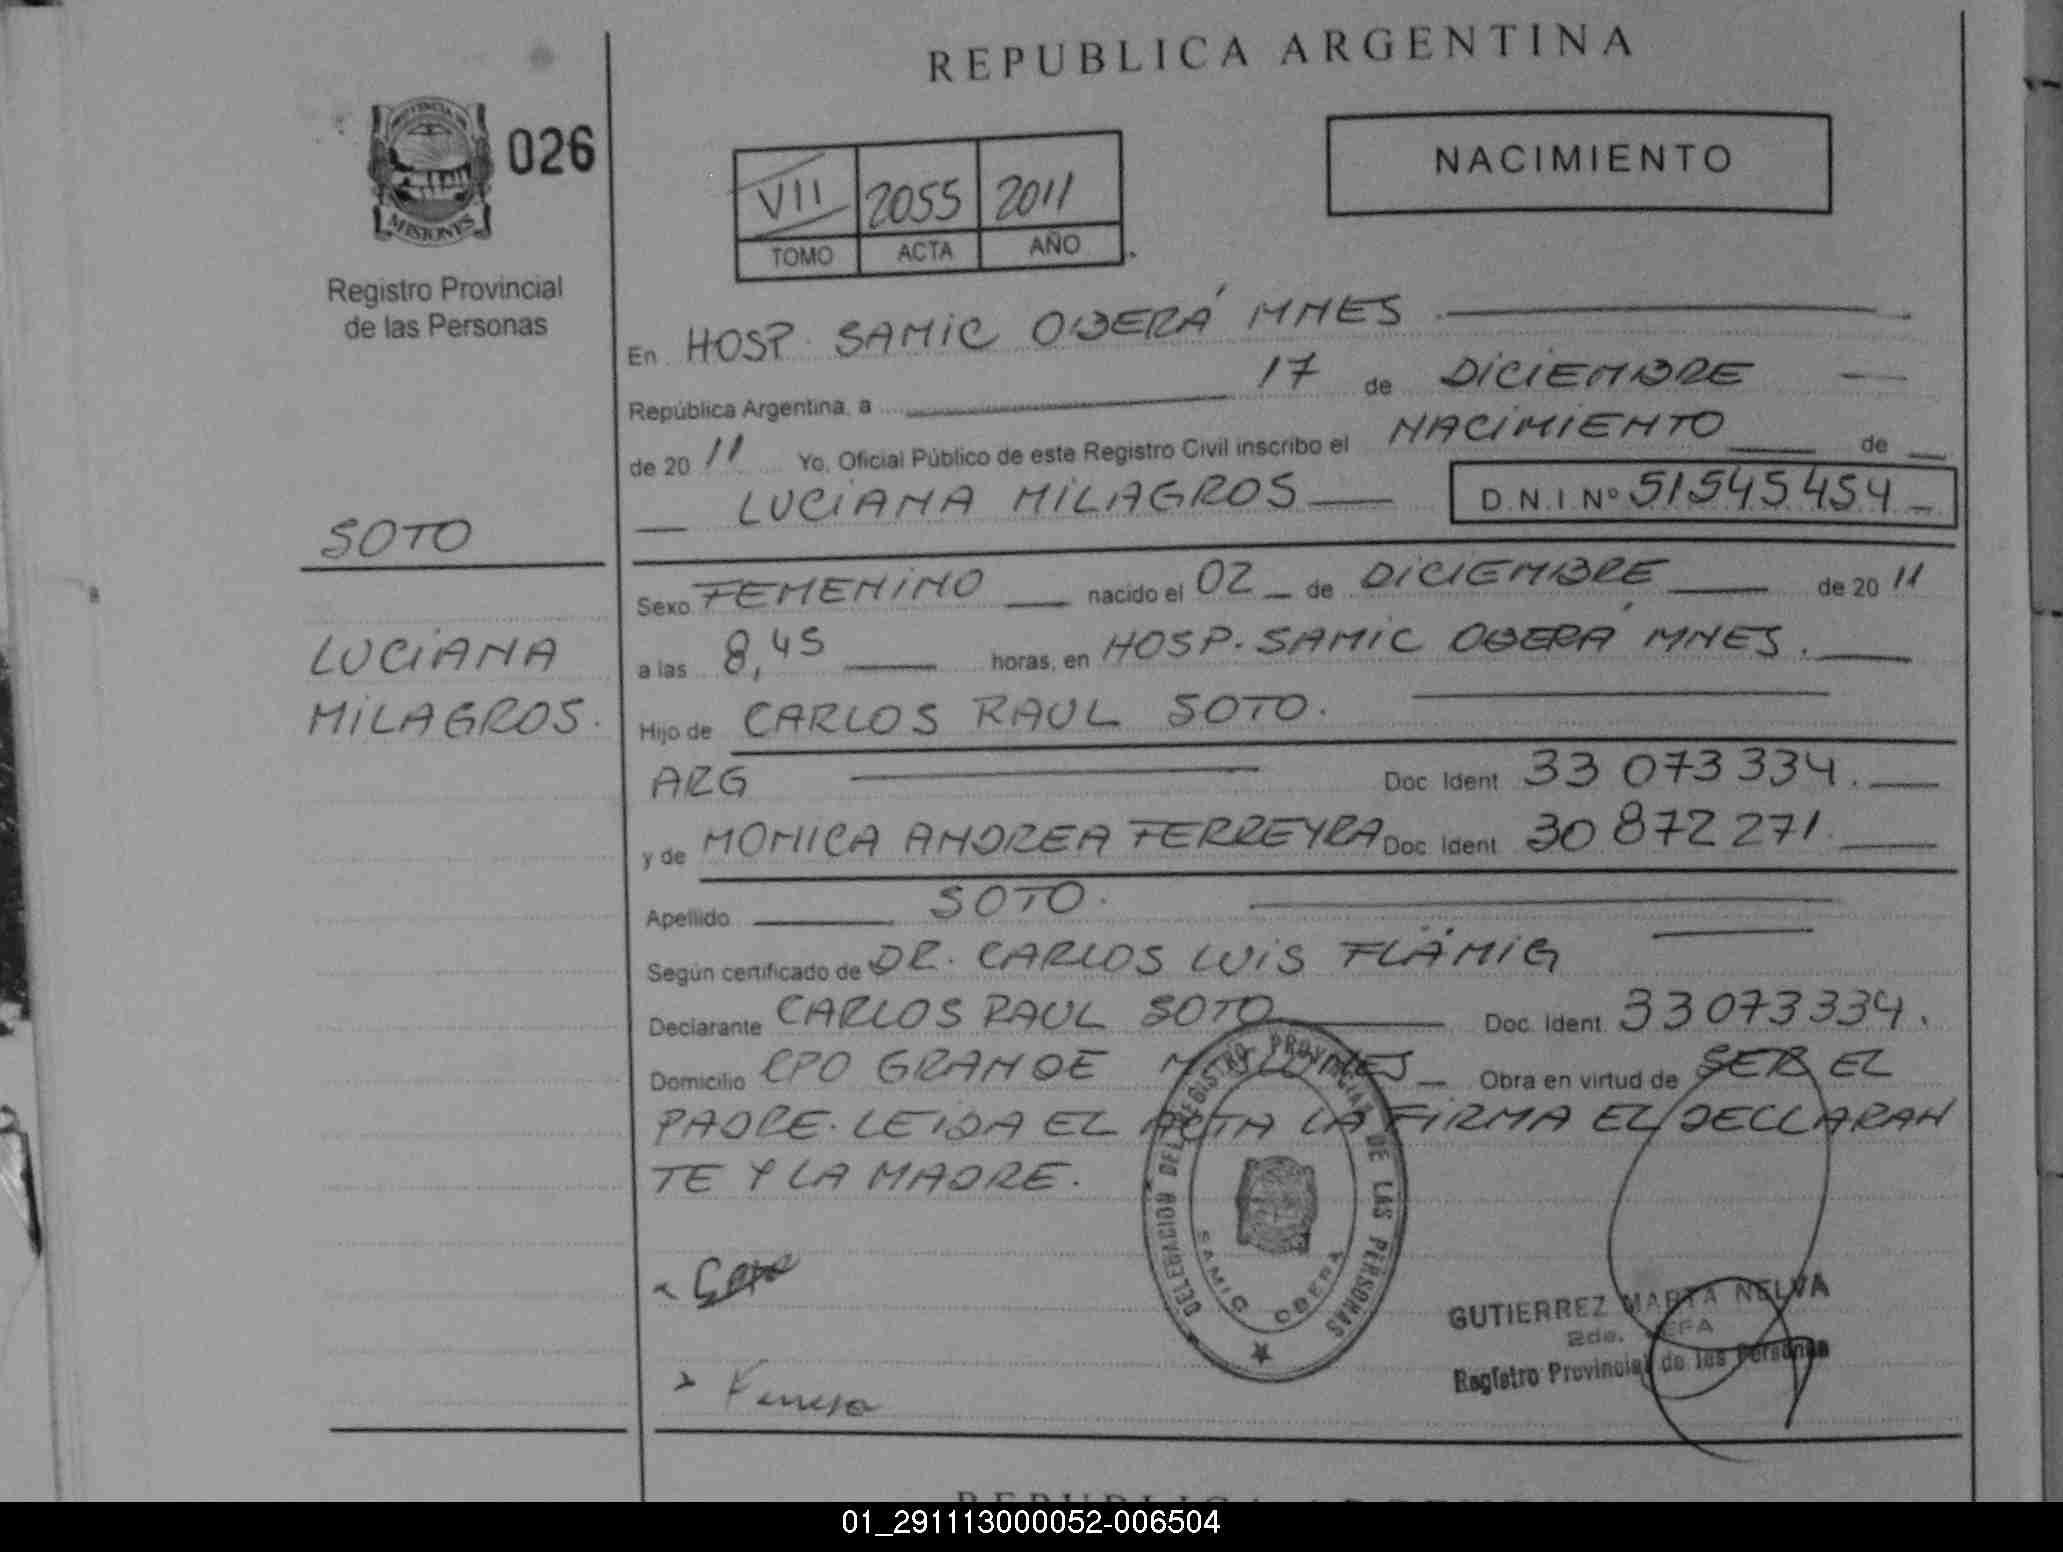 REPUBLICA ARGENTINA
PROVINCIA DE
MISIONES
026
Registro Provincial
de las Personas
VII 2055 2011
TOMO ACTA AÑO
NACIMIENTO
En HOSP. SAMIC OBERÁ MNES
República Argentina, a 17 de DICIEMBRE
de 20 11 Yo, Oficial Público de este Registro Civil inscribo el NACIMIENTO de
LUCIANA MILAGROS D.N.I. Nº 51545454
SOTO
Sexo FEMENINO nacido el 02 de DICIEMBRE de 20 11
LUCIANA
a las 8,45 horas, en HOSP. SAMIC OBERÁ MNES.
MILAGROS.
Hijo de CARLOS RAUL SOTO.
ARG Doc. Ident. 33 073 334.
y de MONICA ANDREA FERREYRA Doc. Ident. 30 872 271.
Apellido SOTO.
Según certificado de DR. CARLOS LUIS FLÄMIG
Declarante CARLOS RAUL SOTO Doc. Ident. 33 073 334.
Domicilio CPO GRANDE Obra en virtud de SER EL
PADRE. LEIDA EL ACTA LA FIRMA EL DECLARAN
TE Y LA MADRE.
DELEGACION DEL REGISTRO PROVINCIAL DE LAS PERSONAS
SAMIC OBERA
GUTIERREZ MARTA NELVA
2da. JEFA
Registro Provincial de las Personas
REPUBLICA ARGENTINA
01_291113000052-006504